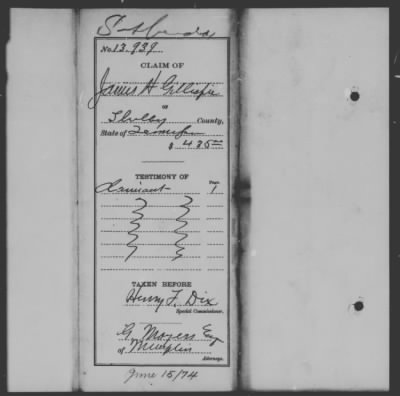 No. 13.939
CLAIM OF
James H Gillespie
OF
Shelby County,
State of Tennessee
$ 425 00
TESTIMONY OF
Page.
Claimant 1
TAKEN BEFORE
Henry F. Dix
Special Commissioner.
G. Moyers Esq
of Memphis
Attorney.
June 15/74